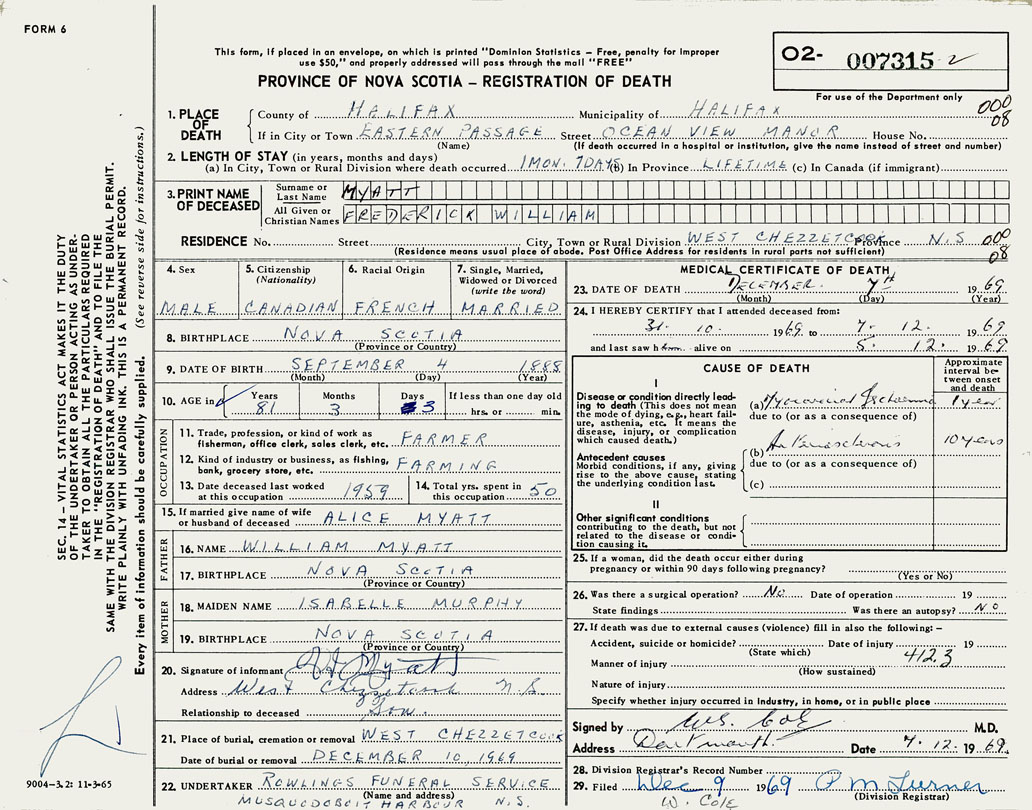 FORM 6
This form, if placed in an envelope, on which is printed "Dominion Statistics – Free, penalty for improper
use $50," and properly addressed will pass through the mail "FREE"
PROVINCE OF NOVA SCOTIA – REGISTRATION OF DEATH
02- 007315
For use of the Department only
000
08
1. PLACE OF DEATH
County of HALIFAX Municipality of HALIFAX
If in City or Town EASTERN PASSAGE Street OCEAN VIEW MANOR House No.
(Name) (If death occurred in a hospital or institution, give the name instead of street and number)
2. LENGTH OF STAY (in years, months and days)
(a) In City, Town or Rural Division where death occurred 1 MON. 7 DAYS (b) In Province LIFETIME (c) In Canada (if immigrant)
3. PRINT NAME OF DECEASED
Surname or Last Name MYATT
All Given or Christian Names FREDERICK WILLIAM
RESIDENCE No. Street City, Town or Rural Division WEST CHEZZETCOOK Province N.S. 000
08
(Residence means usual place of abode. Post Office Address for residents in rural parts not sufficient)
4. Sex MALE
5. Citizenship (Nationality) CANADIAN
6. Racial Origin FRENCH
7. Single, Married, Widowed or Divorced (write the word) MARRIED
8. BIRTHPLACE NOVA SCOTIA
(Province or Country)
9. DATE OF BIRTH SEPTEMBER 4 1888
(Month) (Day) (Year)
10. AGE in Years 81 Months 3 Days 3 If less than one day old hrs. or min.
OCCUPATION
11. Trade, profession, or kind of work as fisherman, office clerk, sales clerk, etc. FARMER
12. Kind of industry or business, as fishing, bank, grocery store, etc. FARMING
13. Date deceased last worked at this occupation 1959
14. Total yrs. spent in this occupation 50
15. If married give name of wife or husband of deceased ALICE MYATT
FATHER
16. NAME WILLIAM MYATT
17. BIRTHPLACE NOVA SCOTIA
(Province or Country)
MOTHER
18. MAIDEN NAME ISABELLE MURPHY
19. BIRTHPLACE NOVA SCOTIA
(Province or Country)
20. Signature of informant Myatt
Address West Chezzetcook N.S.
Relationship to deceased Son.
21. Place of burial, cremation or removal WEST CHEZZETCOOK
Date of burial or removal DECEMBER 10, 1969
22. UNDERTAKER ROWLINGS FUNERAL SERVICE
(Name and address)
MUSQUODOBOIT HARBOUR N.S.
MEDICAL CERTIFICATE OF DEATH
23. DATE OF DEATH DECEMBER 7th 1969
(Month) (Day) (Year)
24. I HEREBY CERTIFY that I attended deceased from:
31. 10. 1969 to 7. 12. 1969
and last saw him alive on 5. 12. 1969
CAUSE OF DEATH
Approximate interval between onset and death
I
Disease or condition directly leading to death (This does not mean the mode of dying, e.g., heart failure, asthenia, etc. It means the disease, injury, or complication which caused death.)
(a) Myocardial Ischaemia 1 year
due to (or as a consequence of)
Antecedent causes
Morbid conditions, if any, giving rise to the above cause, stating the underlying condition last.
(b) Arteriosclerosis 10 years
due to (or as a consequence of)
(c)
II
Other significant conditions
contributing to the death, but not related to the disease or condition causing it.
25. If a woman, did the death occur either during pregnancy or within 90 days following pregnancy?
(Yes or No)
26. Was there a surgical operation? No Date of operation 19
State findings Was there an autopsy? NO
27. If death was due to external causes (violence) fill in also the following: –
Accident, suicide or homicide? Date of injury 19
(State which) 412.3
Manner of injury
(How sustained)
Nature of injury
Specify whether injury occurred in industry, in home, or in public place
Signed by W.S. Cole M.D.
Address Dartmouth. Date 7.12.1969
28. Division Registrar's Record Number
29. Filed Dec 9 1969 P M Turner
(Division Registrar)
W. Cole
SEC. 14 – VITAL STATISTICS ACT MAKES IT THE DUTY
OF THE UNDERTAKER OR PERSON ACTING AS UNDER-
TAKER TO OBTAIN ALL THE PARTICULARS REQUIRED
IN THE "REGISTRATION OF DEATH" AND TO FILE THE
SAME WITH THE DIVISION REGISTRAR WHO SHALL ISSUE THE BURIAL PERMIT.
WRITE PLAINLY WITH UNFADING INK. THIS IS A PERMANENT RECORD.
Every item of information should be carefully supplied. (See reverse side for instructions.)
9004-3.2: 11-3-65